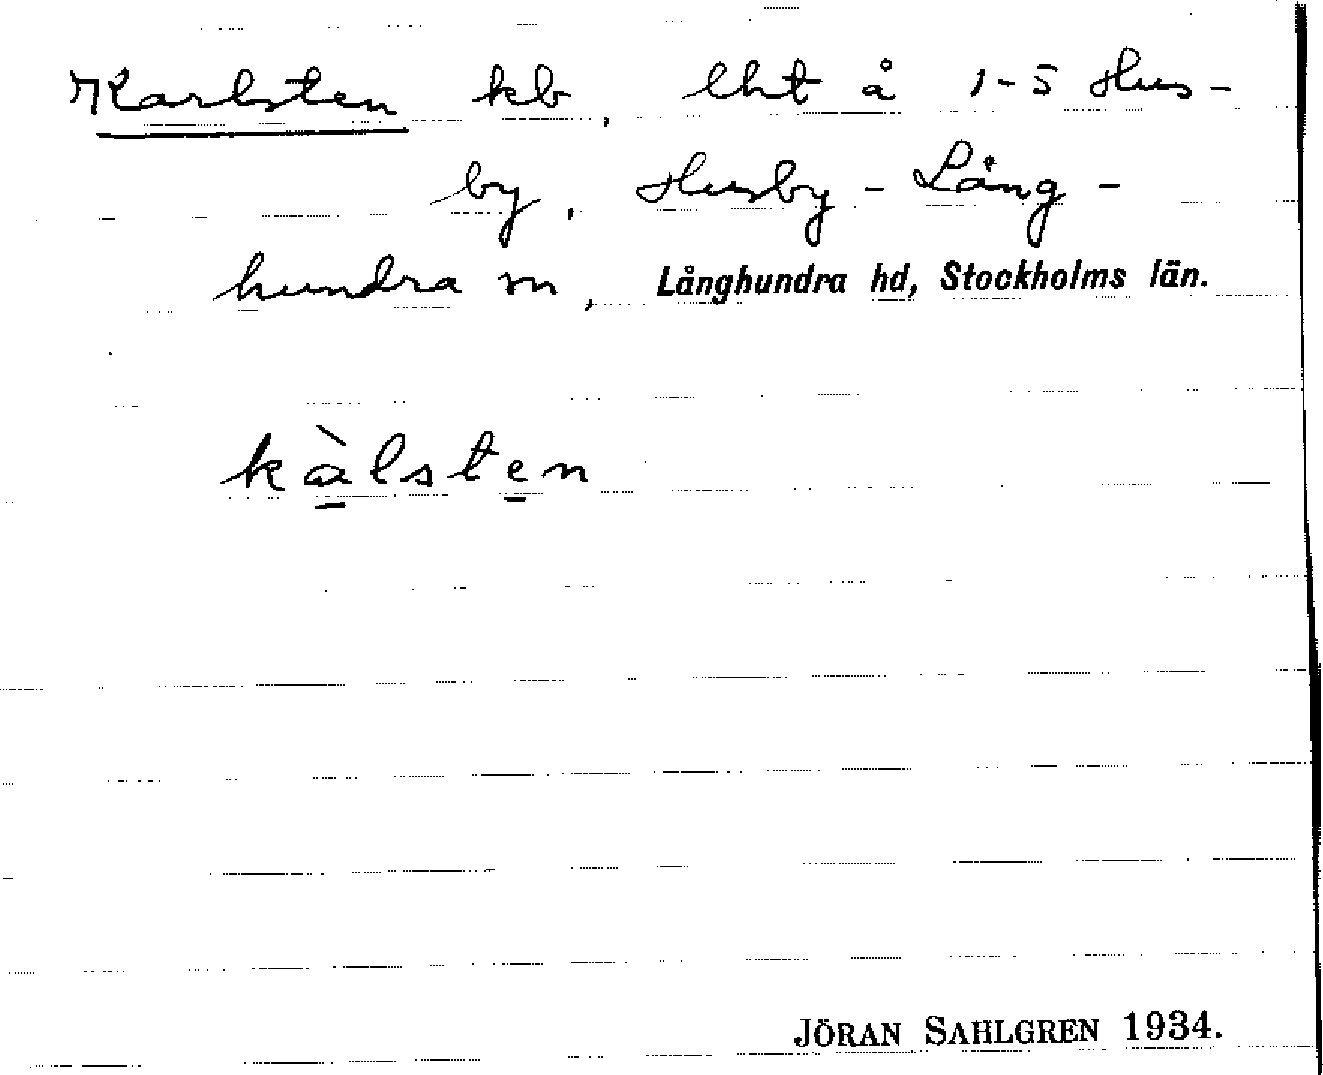 Karlsten kb, lht å 1-5 Hus-
by, Husby-Lång-
hundra sn, Långhundra hd, Stockholms län.
kàlsten
JÖRAN SAHLGREN 1934.